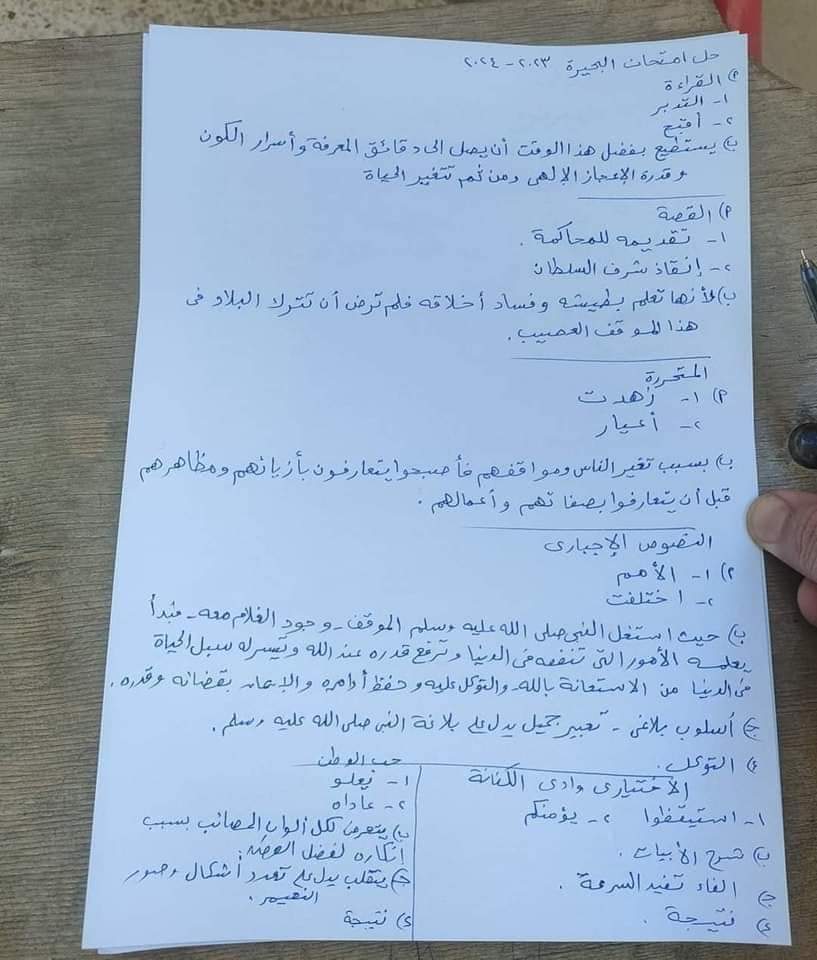 حل امتحان البحيرة ٢٠٢٣ - ٢٠٢٤
أ) القراءة
١- التدبر
٢- أقبح
ب) يستطيع بفضل هذا الوقت أن يصل الى دقائق المعرفة وأسرار الكون
وقدرة الإعجاز الإلهى ومن ثم تتغير الحياة
أ) القصة
١- تقديمه للمحاكمة .
٢- إنقاذ شرف السلطان
ب) لأنها تعلم بطيشه وفساد أخلاقه فلم ترض أن تترك البلاد فى
هذا الموقف العصيب .
المتحررة
أ) ١- زهدت
٢- أعيار
ب) بسبب تغير الناس ومواقفهم فأصبحوا يتعارفون بأزيائهم ومظاهرهم
قبل أن يتعارفوا بصفاتهم وأعمالهم .
النصوص الإجبارى
أ) ١- الأهم
٢- اختلفت
ب) حيث استغل النبى صلى الله عليه وسلم الموقف - وجود الغلام معه - فبدأ
يعلمه الأمور التى تنفعه فى الدنيا وترفع قدره عند الله وتيسر له سبل الحياة
فى الدنيا من الاستعانة بالله والتوكل عليه وحفظ أوامره والإيمان بقضائه وقدره .
ج) أسلوب بلاغى - تعبير جميل يدل على بلاغة النبى صلى الله عليه وسلم .
د) التوكل .
الاختيارى وادى الكنانة
١- استيقظوا ٢- يؤمنكم
ب) شرح الأبيات .
ج) الفاء تفيد السرعة .
د) نتيجة .
حب الوطن
١- نعلو
٢- عاداه
ب) يتعرض لكل ألوان المصائب بسبب
إنكاره لفضل الوطن .
ج) يتقلب يدل على تعدد أشكال وصور
النعيم .
د) نتيجة